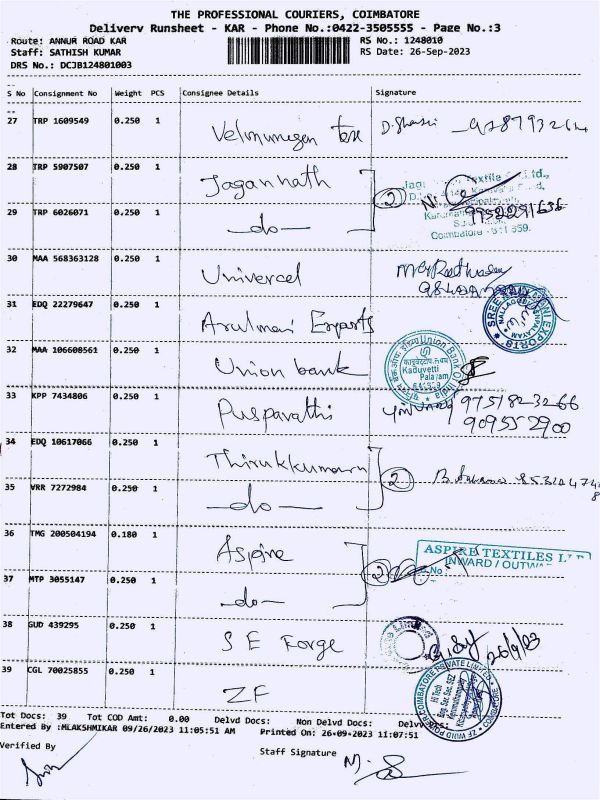 THE PROFESSIONAL COURIERS, COIMBATORE
Delivery Runsheet - KAR - Phone No.:0422-3505555 - Page No.:3
Route: ANNUR ROAD KAR RS No.: 1248010
Staff: SATHISH KUMAR RS Date: 26-Sep-2023
DRS No.: DCJB124801003
S No Consignment No Weight PCS Consignee Details Signature
27 TRP 1609549 0.250 1 Velmurugan Tex
28 TRP 5907507 0.250 1 Jagannath 2
29 TRP 6026071 0.250 1 —do— 9952291636
Coimbatore - 641 659.
30 MAA 568363128 0.250 1 Univercel
31 EDQ 22279647 0.250 1 Arulmani Exports
32 MAA 106608561 0.250 1 Union bank Union Bank Of India
Kaduvetti
Palayam
33 KPP 7434806 0.250 1 Puspavathi 9751823266
9095552900
34 EDQ 10617066 0.250 1 Thirukkumaran 2
35 VRR 7272984 0.250 1 —do—
36 TMG 200504194 0.180 1 Aspire ASPIRE TEXTILES
INWARD / OUTWA
37 MTP 3055147 0.250 1 —do— 2
38 GUD 439295 0.250 1 S E Forge 26/9/23
39 CGL 70025855 0.250 1 ZF ZF WIND POWER COIMBATORE PRIVATE LIMITED
Tot Docs: 39 Tot COD Amt: 0.00 Delvd Docs: Non Delvd Docs:
Entered By :MLAKSHMIKAR 09/26/2023 11:05:51 AM Printed On: 26-09-2023 11:07:51
Verified By Staff Signature